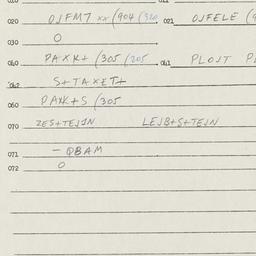 020 OJFM7 xx (904 (320, 021 OJFELE (9
030 O
040 PAXK+ (305 (205 041 PLOJT PL
042 S+TAXET+
060 PAXK+S (305
070 ZES+TEJJN LEJB+S+TEJN
071 - QBAM
072 O